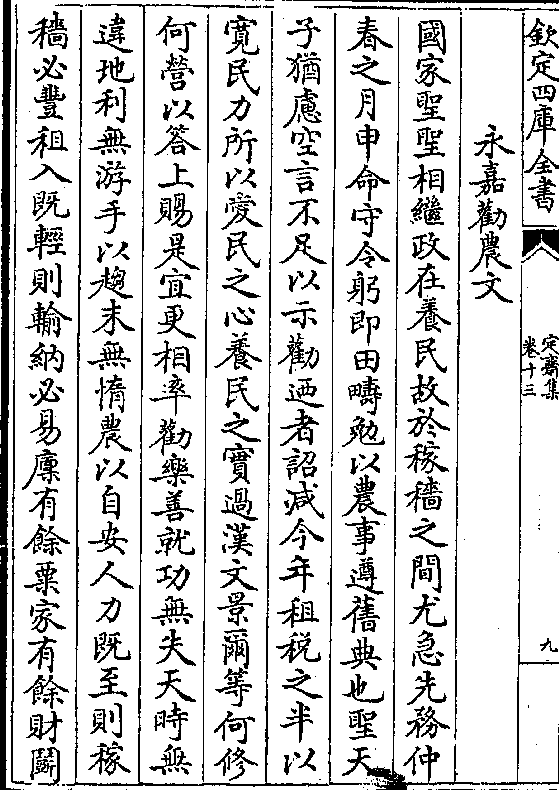 欽定四庫全書
定齋集
卷十三
九
永嘉勸農文
國家聖聖相繼政在養民故於稼穡之間尤急先務仲
春之月申命守令躬即田疇勉以農事遵舊典也聖天
子猶慮空言不足以示勸迺者詔減今年租税之半以
寛民力所以愛民之心養民之實過漢文景爾等何修
何營以答上賜是宜更相率勸樂善就功無失天時無
違地利無游手以趨末無惰農以自安人力既至則稼
穡必豐租入既輕則輸納必易廩有餘粟家有餘財鬬